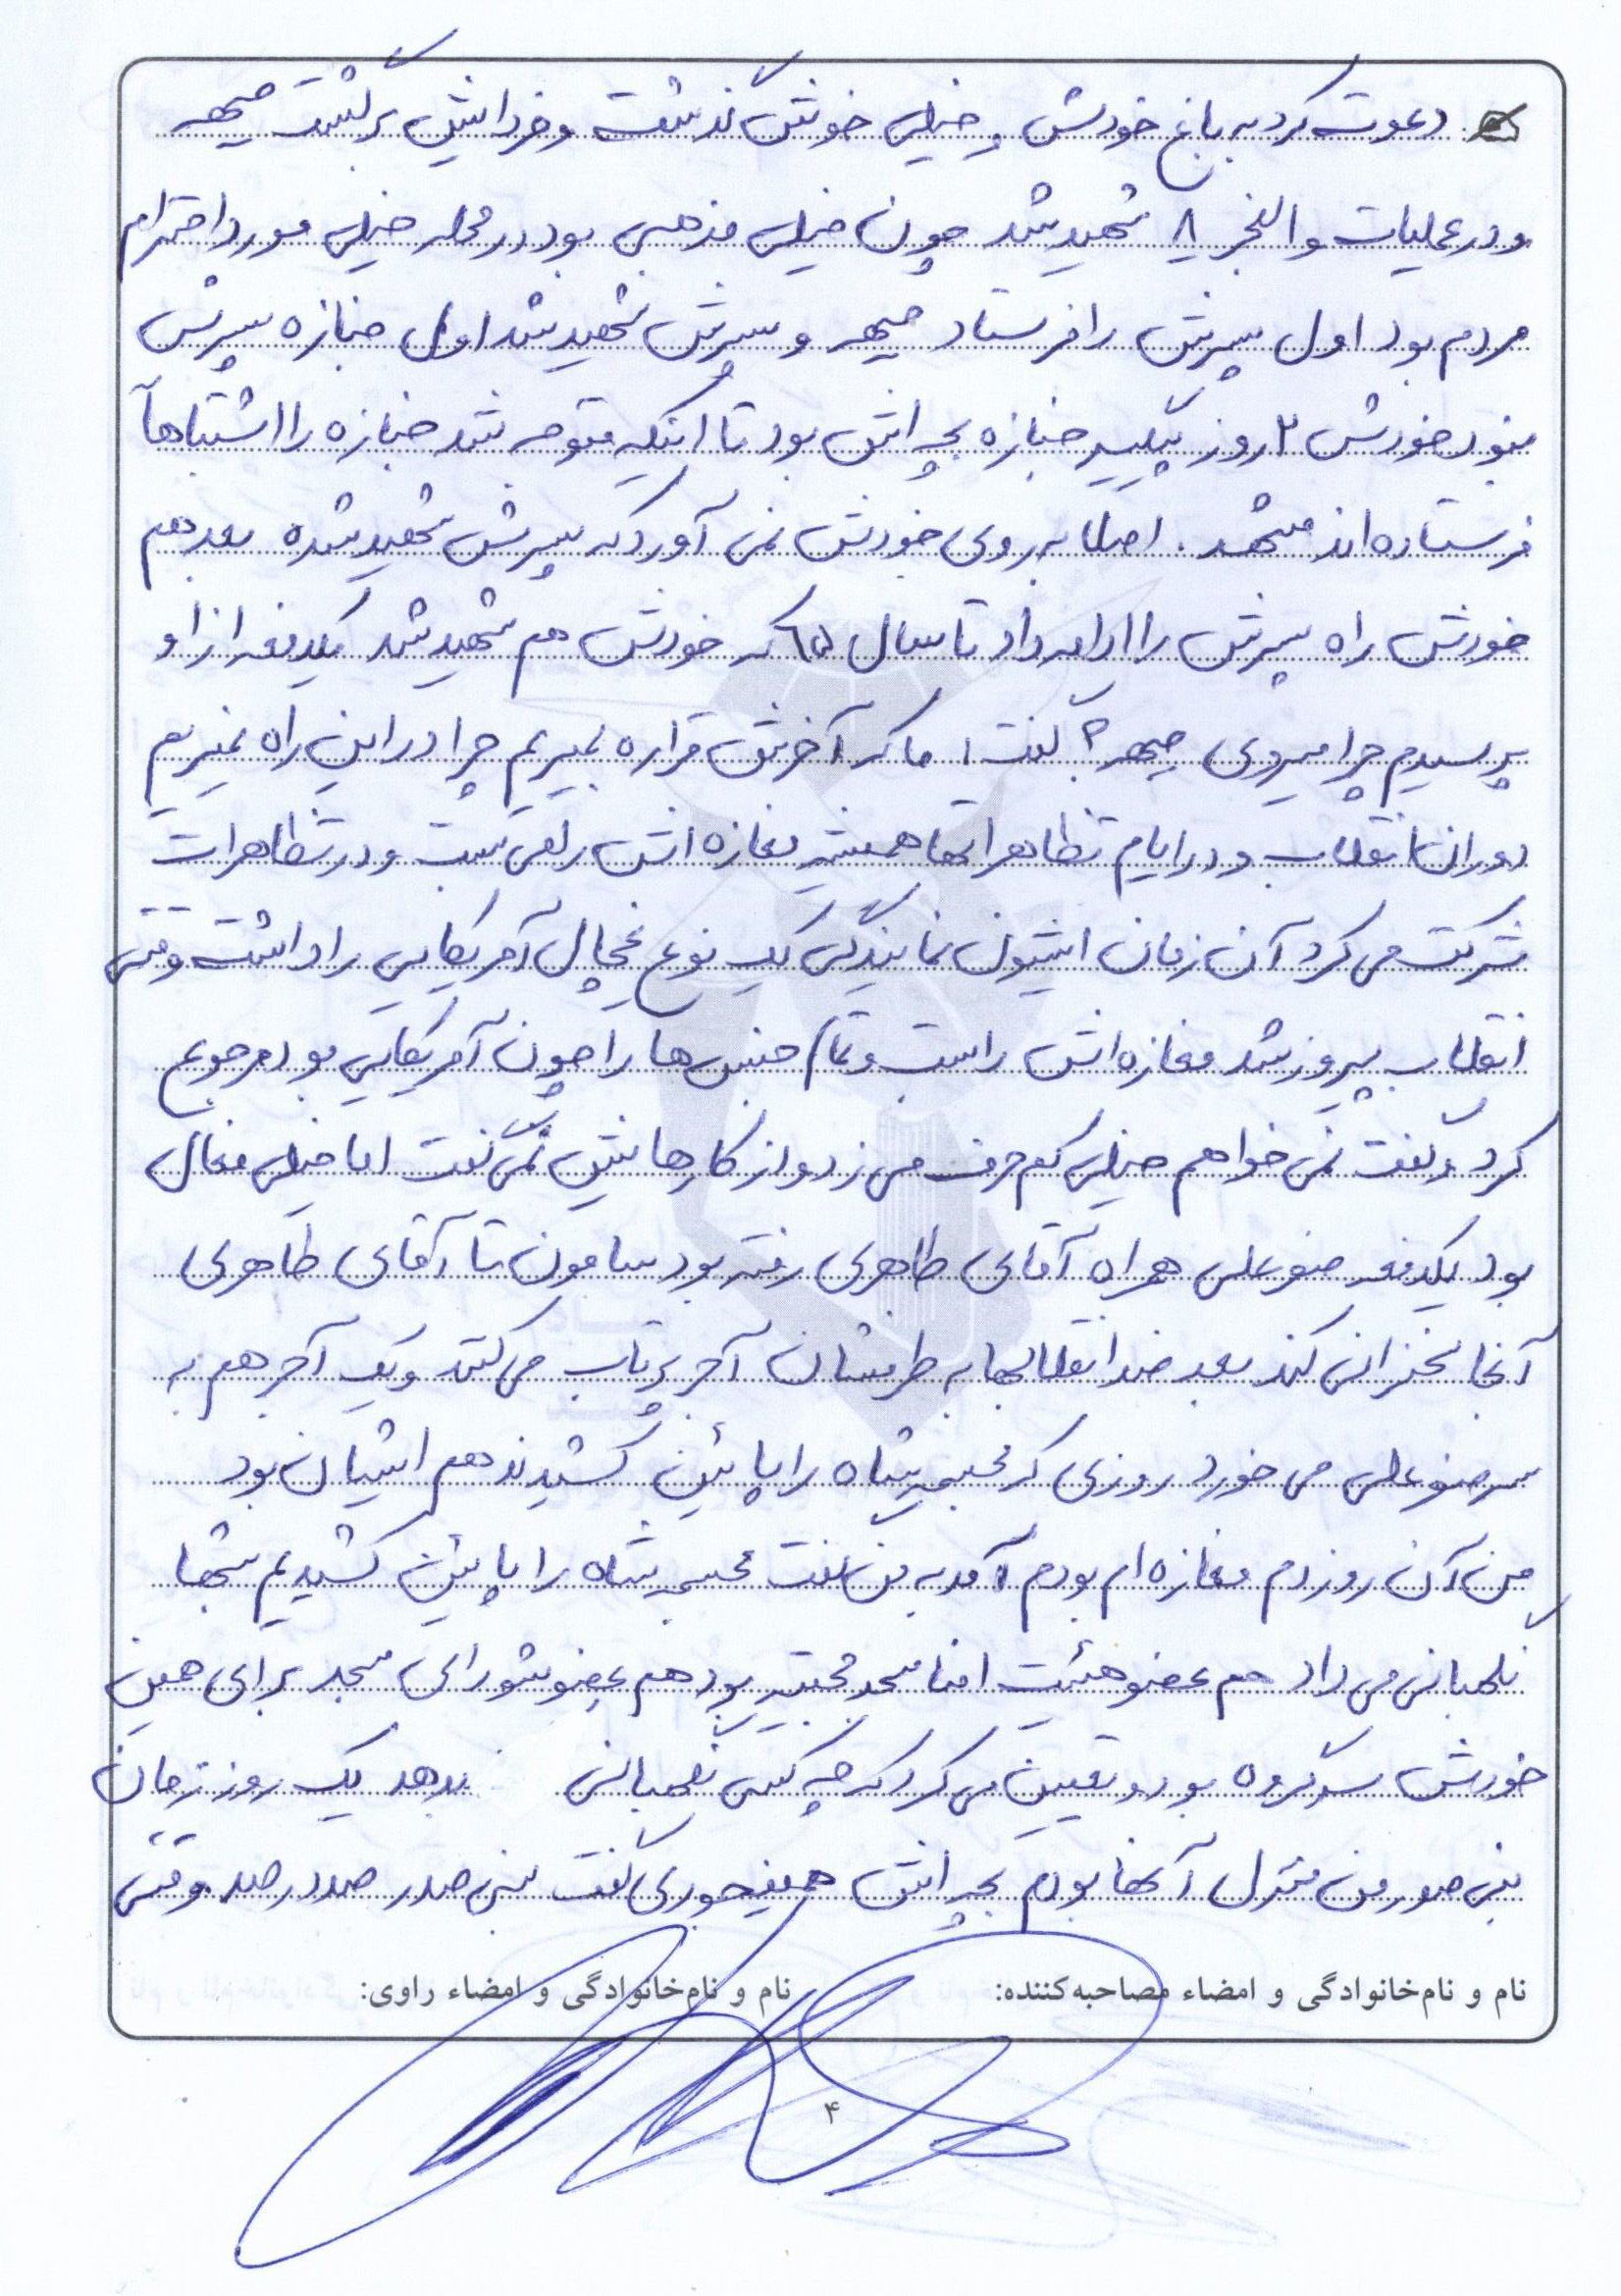 دعوت کرد به باغ خودش و خیلی خوش گذشت و فردایش برگشت جبهه
و در عملیات والفجر ۸ شهید شد چون خیلی مذهبی بود در محله خیلی مورد احترام
مردم بود اول پسرش را فرستاد جبهه و پسرش شهید شد اول جنازه پسرش
نبود خودش ۲ روز پیگیر جنازه بچه اش بود تا اینکه متوجه شد جنازه را اشتباهاً
فرستاده اند مشهد. اصلا به روی خودش نمی آورد که پسرش شهید شده بعد هم
خودش راه پسرش را ادامه داد تا سال ۶۵ که خودش هم شهید شد یکدفعه از او
پرسیدم چرا میروی جبهه؟ گفت، ما که آخرش قراره بمیریم چرا در این راه نمیریم
دوران انقلاب و در ایام تظاهراتها همیشه مغازه اش را می بست و در تظاهرات
شرکت می کرد آن زمان ایشون نمایندگی یک نوع یخچال آمریکایی را داشت وقتی
انقلاب پیروز شد مغازه اش را بست و تمام جنس ها را چون آمریکایی بود مرجوع
کرد و گفت نمی خواهم خیلی کم حرف می زد و از کارهایش نمی گفت اما خیلی فعال
بود یکدفعه صنوعلی همراه آقای طاهری رفته بود سامون تا آقای طاهری
آنجا سخنرانی کند بعد ضد انقلابها به طرفشان آجر پرتاب می کنند و یک آجر هم به
سر صنوعلی می خورد روزی که مجسمه شاه را پائین کشیدند هم ایشان بود
من آن روز دم مغازه ام بودم آمد به من گفت مجسمه شاه را پائین کشیدیم شبها
نگهبانی می داد هم عضو هیئت امنا مسجد مجتبی بود هم عضو شورای مسجد برای همین
خودش سرگروه بود و تعیین می کرد که چه کسی نگهبانی بدهد یک روز زمان
بنی صدر من منزل آنها بودم بچه اش همینجوری گفت بنی صدر صددرصد وقتی
نام و نام‌خانوادگی و امضاء مصاحبه‌کننده: نام و نام‌خانوادگی و امضاء راوی:
۴